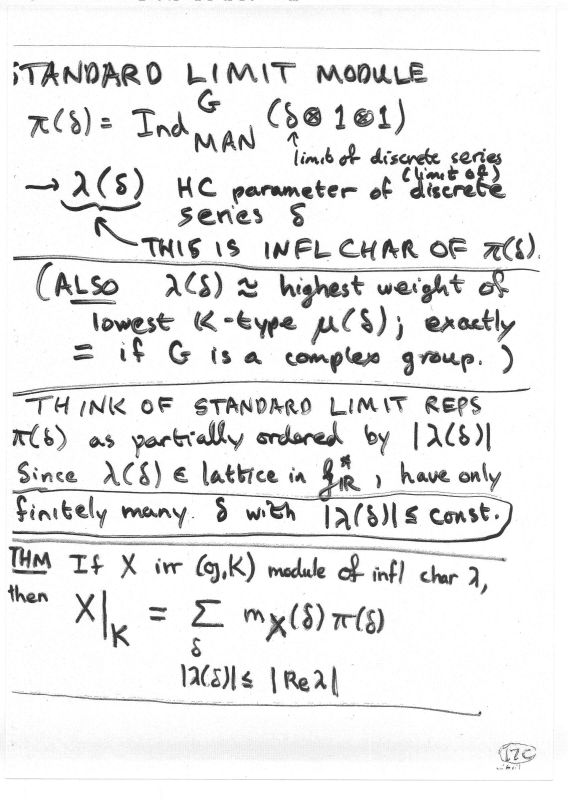 STANDARD LIMIT MODULE
π(δ) = Ind_{MAN}^{G} (δ⊗1⊗1)
↑
limit of discrete series
→ λ(δ) HC parameter of (limit of) discrete
series δ
THIS IS INFL CHAR OF π(δ).
(ALSO λ(δ) ≈ highest weight of
lowest K-type μ(δ); exactly
= if G is a complex group.)
THINK OF STANDARD LIMIT REPS
π(δ) as partially ordered by |λ(δ)|
Since λ(δ) ∈ lattice in 𝔥*_ℝ, have only
finitely many δ with |λ(δ)| ≤ const.
THM If X irr (𝔤,K) module of infl char λ,
then X|_K = Σ m_X(δ) π(δ)
δ
|λ(δ)| ≤ |Re λ|